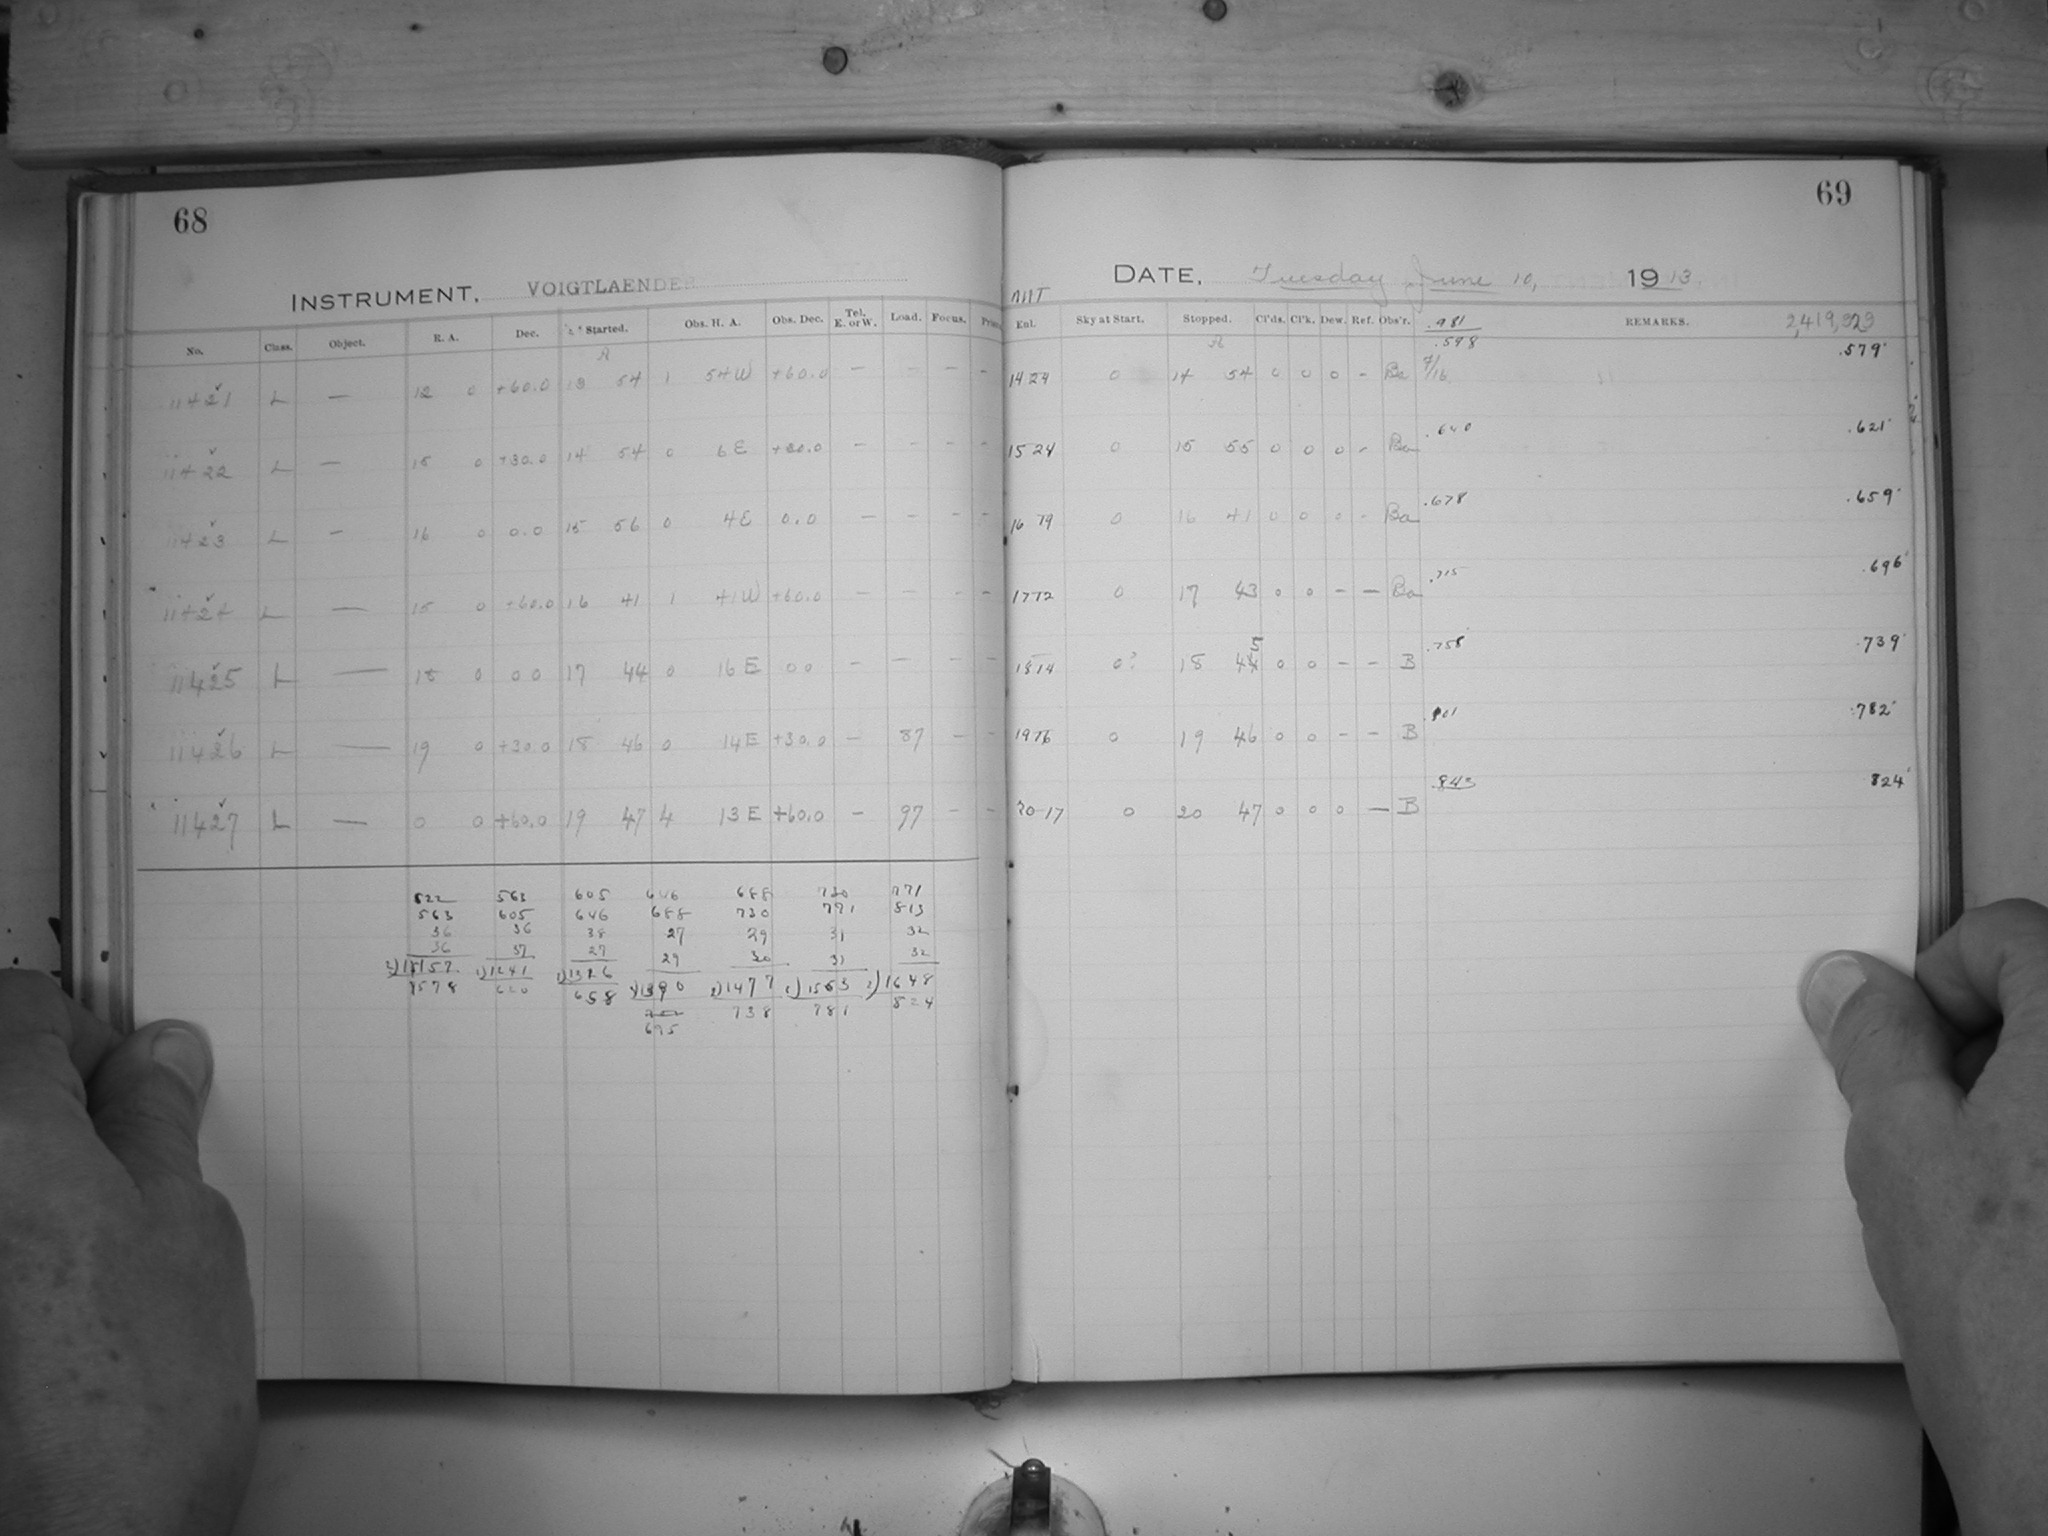 68
INSTRUMENT, VOIGTLAENDER
No. Class. Object. R. A. Dec. Started. Obs. H. A. Obs. Dec. Tel. E. or W. Load. Focus.
11421 L — 12 0 +60.0 13 54 1 54W +60.0 — — — —
11422 L — 15 0 +30.0 14 54 0 6E +30.0 — — — —
11423 L — 16 0 0.0 15 56 0 4E 0.0 — — — —
11424 L — 15 0 +60.0 16 41 1 41W +60.0 — — — —
11425 L — 18 0 0 0 17 44 0 16E 0 0 — — — —
11426 L — 19 0 +30.0 18 46 0 14E +30.0 — 87 — —
11427 L — 0 0 +60.0 19 47 4 13E +60.0 — 97 — —
522 563 605 646 688 730 771
563 605 646 688 730 771 813
36 36 38 27 29 31 32
36 37 27 29 30 31 32
2)1157 2)1241 2)1316 2)1390 2)1477 2)1563 2)1648
578 620 658 738 781 824
695
69
DATE, Tuesday June 10, 1913.
Sky at Start. Stopped. Cl'ds. Cl'k. Dew. Ref. Obs'r. .981 REMARKS. 2,419,929
.598
14 24 0 14 54 0 0 0 - Ba 7/16 .579
15 24 0 15 55 0 0 0 - Ba .640 .621
16 79 0 16 41 0 0 0 - Ba .678 .659
17 72 0 17 43 0 0 - — Ba .715 .696
18 14 0? 18 45 0 0 - - B .758 .739
19 76 0 19 46 0 0 - - B .801 .782
20 17 0 20 47 0 0 0 — B .843 824